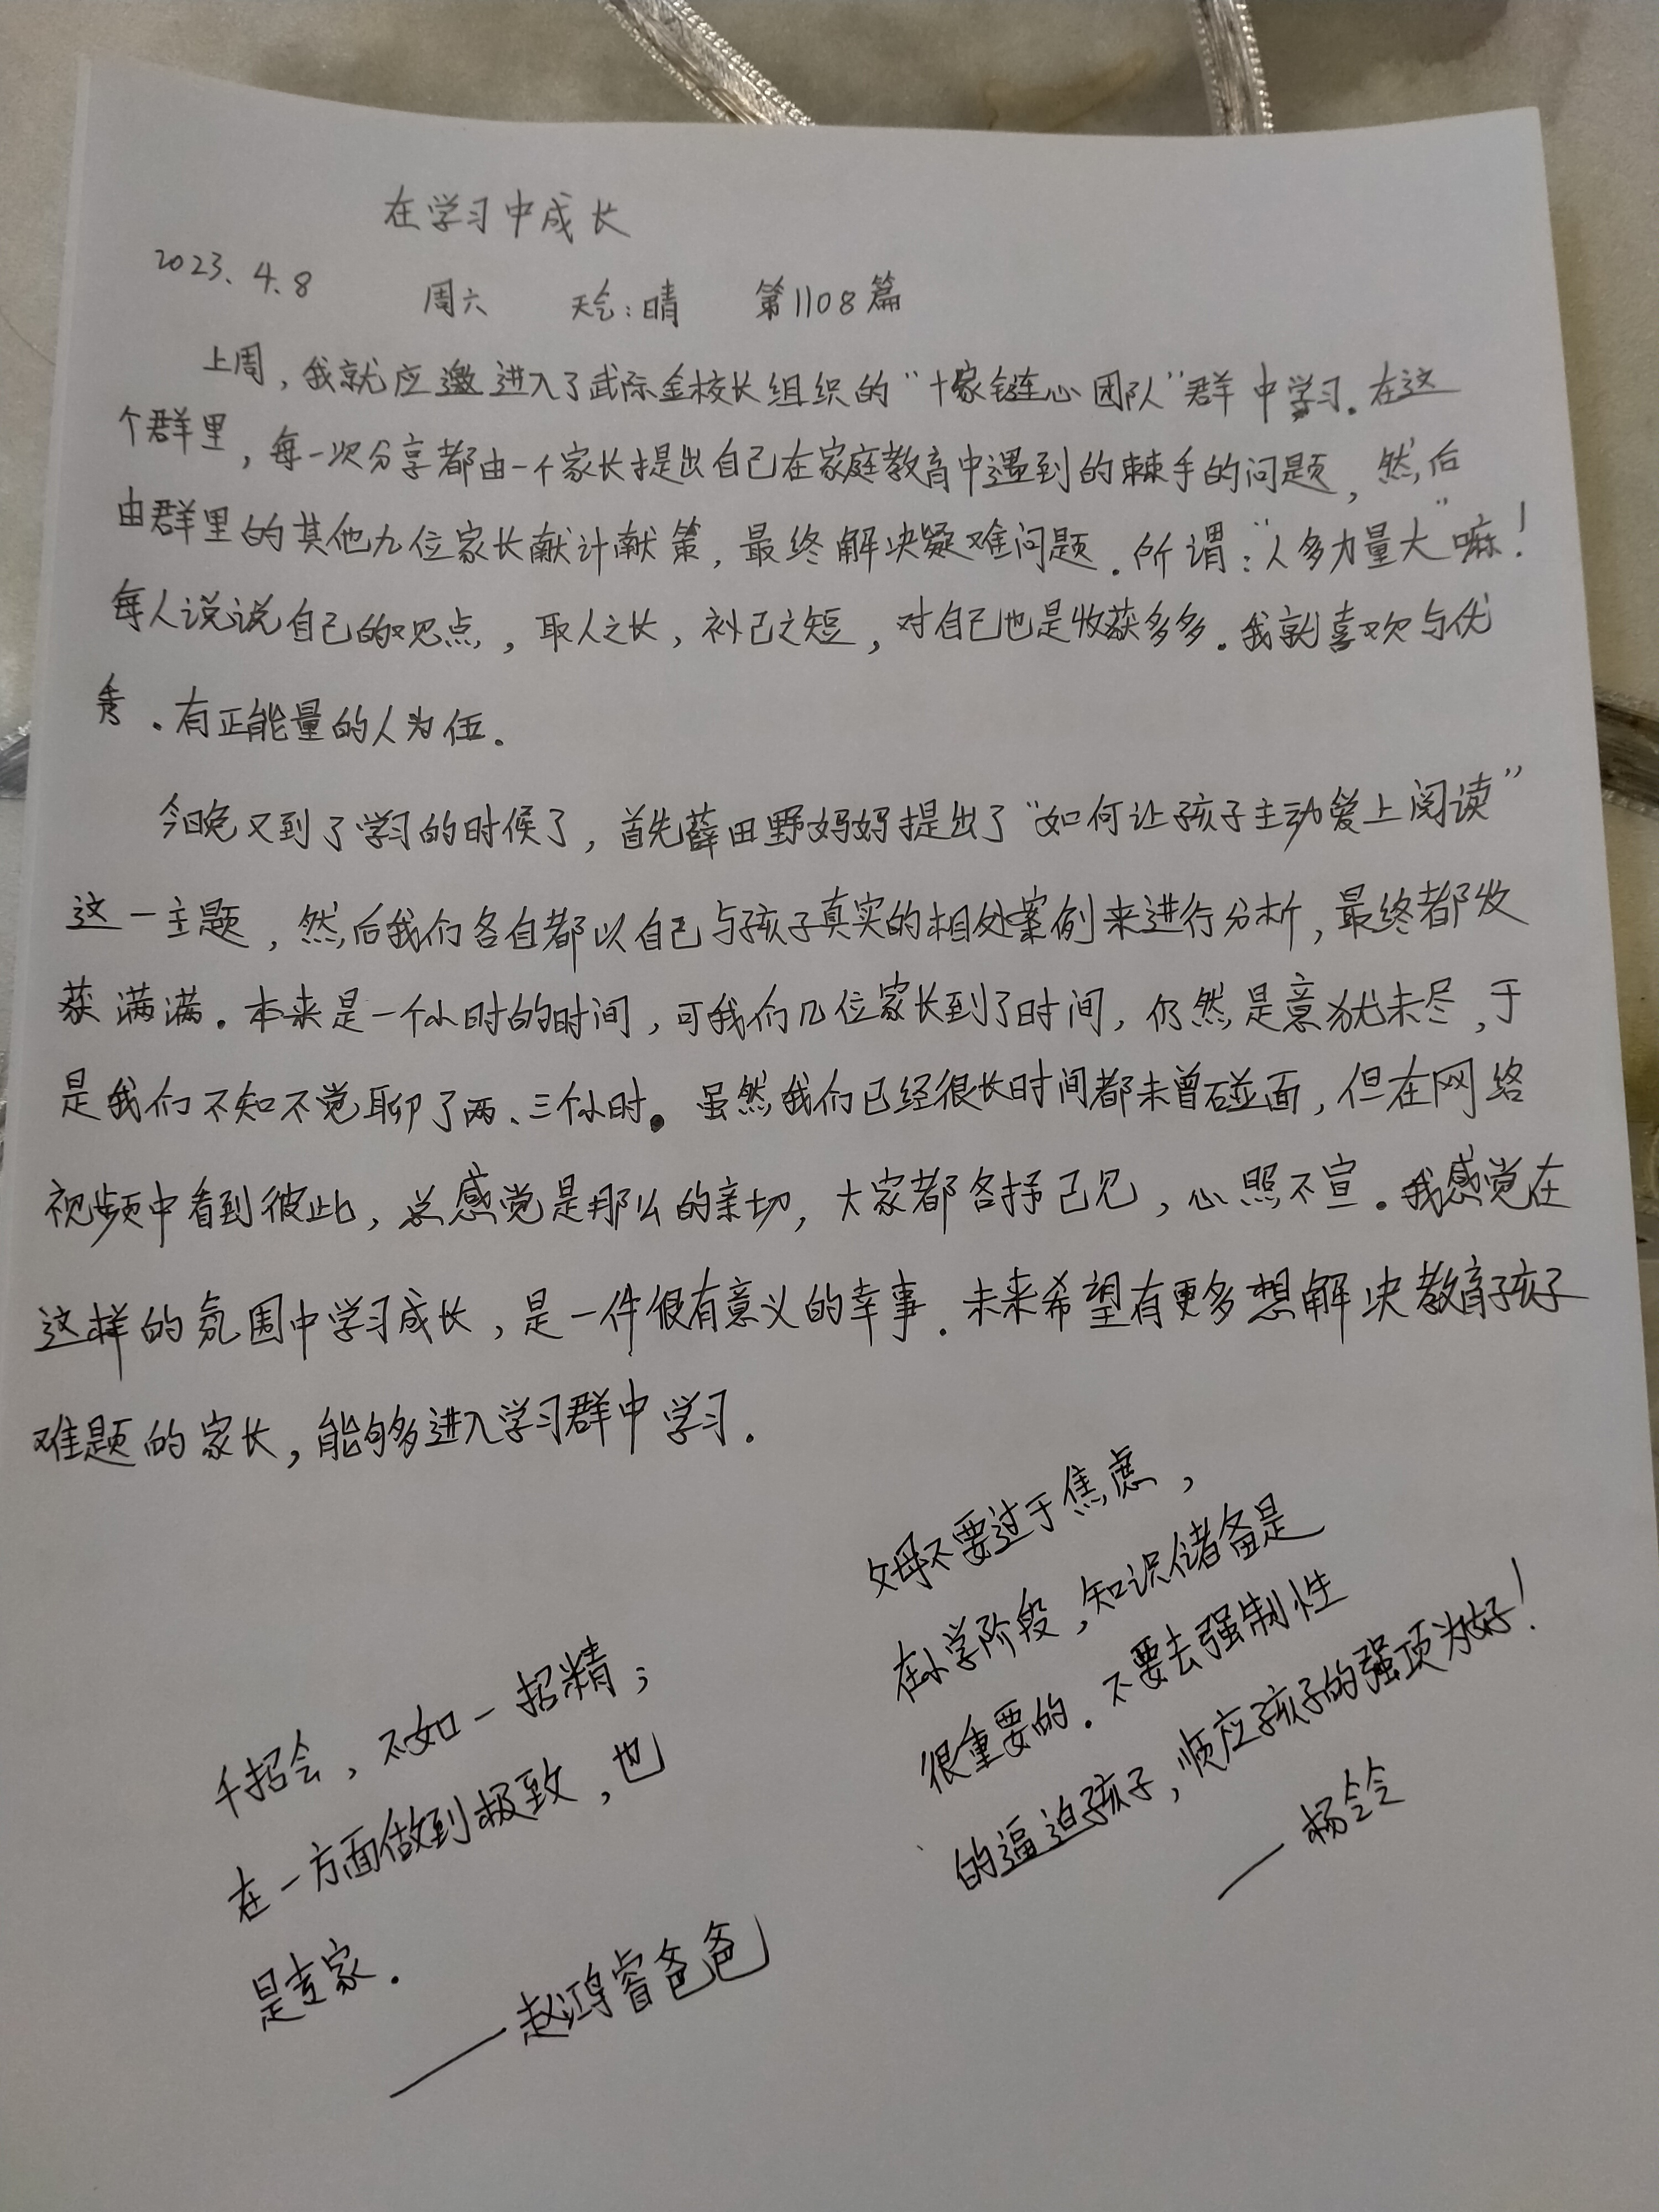 在学习中成长
2023.4.8 周六 天气:晴 第1108篇
上周,我就应邀进入了武际金校长组织的“十家链心团队”群中学习.在这
个群里,每一次分享都由一个家长提出自己在家庭教育中遇到的棘手的问题,然后
由群里的其他九位家长献计献策,最终解决疑难问题.所谓:“人多力量大”嘛!
每人说说自己的观点,取人之长,补己之短,对自己也是收获多多.我就喜欢与优
秀.有正能量的人为伍.
今晚又到了学习的时候了,首先薛田野妈妈提出了“如何让孩子主动爱上阅读”
这一主题,然后我们各自都以自己与孩子真实的相处案例来进行分析,最终都收
获满满.本来是一个小时的时间,可我们几位家长到了时间,仍然是意犹未尽,于
是我们不知不觉聊了两、三个小时。虽然我们已经很长时间都未曾碰面,但在网络
视频中看到彼此,总感觉是那么的亲切,大家都各抒己见,心照不宣.我感觉在
这样的氛围中学习成长,是一件很有意义的幸事.未来希望有更多想解决教育孩子
难题的家长,能够进入学习群中学习.
父母不要过于焦虑,
在小学阶段,知识储备是
很重要的.不要去强制性
的逼迫孩子,顺应孩子的强项为好!
——杨
千招会,不如一招精;
在一方面做到极致,也
是专家.
——赵鸿睿爸爸